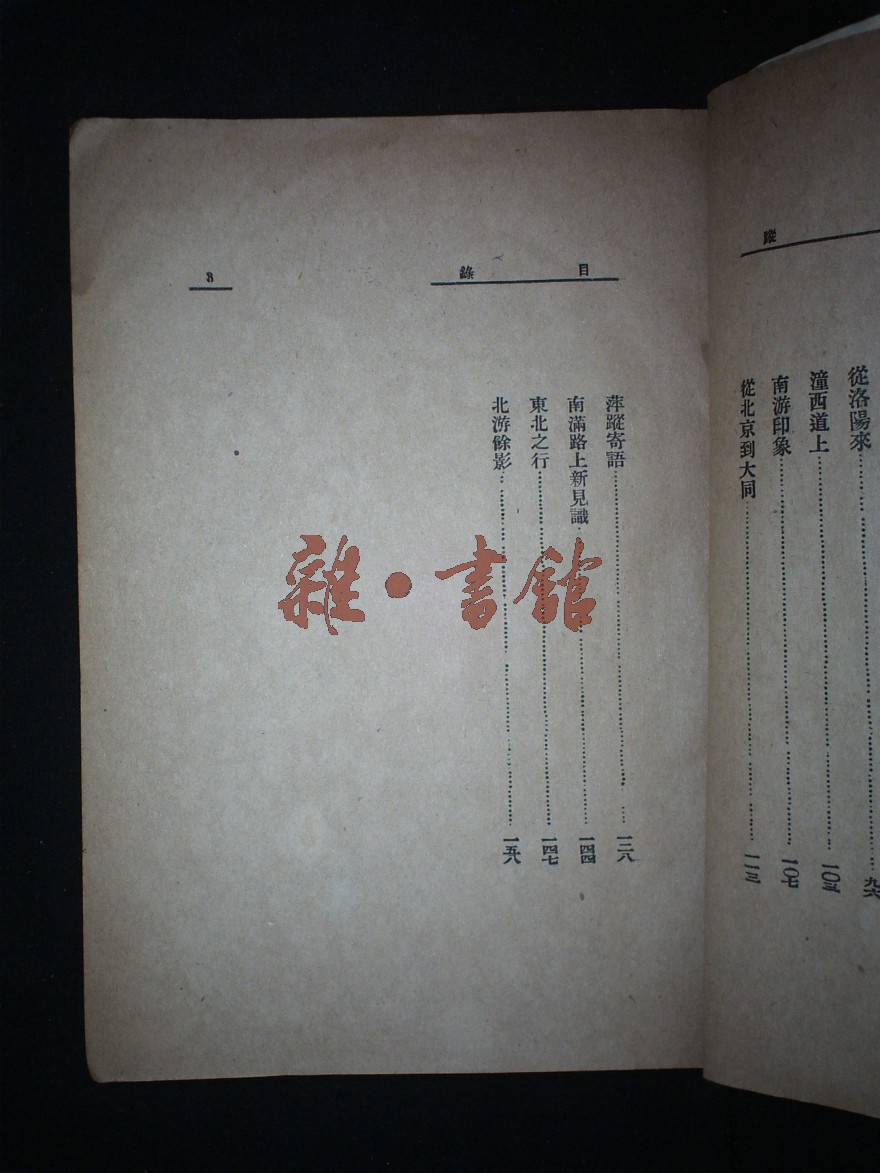 蹤
從洛陽來……九六
潼西道上……一〇三
南游印象……一〇七
從北京到大同……一一三
目錄
3
萍蹤寄語……一三八
南滿路上新見識……一四四
東北之行……一四七
北游餘影……一五八
雜·書館